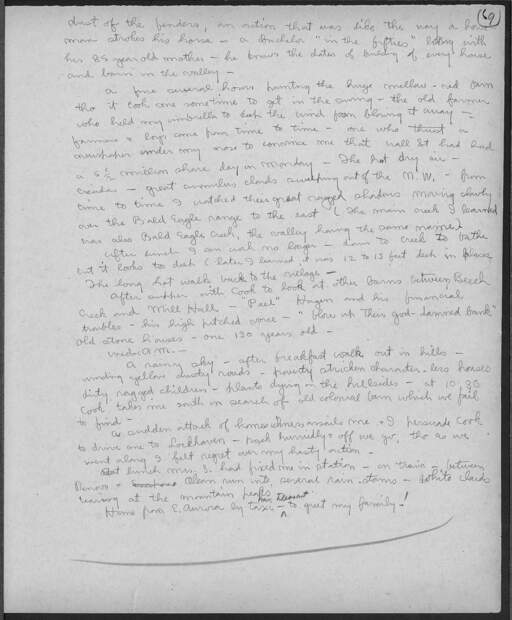 (69)
dust of the fenders, an action that was like the way a horse
man strokes his horse – a bachelor "in the fifties" living with
his 85 year old mother – he knows the dates of building of every house
and barn in the valley –
A fine several hours painting the huge mellow-red barn
tho it took me some time to get in the swing – the old farmer
who held my umbrella to keep the wind from blowing it away –
farmers & boys came from time to time – one who thrust a
newspaper under my nose to convince me that Wall St had had
a 6½ million share day on Monday – The hot dry air –
cicadas – great cumulus clouds sweeping out of the N.W. – from
time to time I watched their great ragged shadows moving slowly
over the Bald Eagle range to the east (The main creek I learned
was also Bald Eagle Creek, the valley having the same name.)
After lunch I can work no longer – down to creek to bathe
but it looks to deep (later I learned it was 12 to 15 feet deep in places
The long hot walk back to the village –
After supper with Cook to look at other barns between Beech
Creek and Mill Hall – "Pete" Hagen and his financial
troubles – his high pitched voice – "blow up their god-damned bank"
old stone houses – one 130 years old –
Weds A.M. –
A rainy sky – after breakfast walk out in hills –
winding yellow dusty roads – poverty stricken character – less houses
dirty ragged children – plants dying on the hillsides – at 10:30
Cook takes me south in search of old colonial barn which we fail
to find –
A sudden attack of homesickness assails me & I persuade Cook
to drive me to Lockhaven – pack hurriedly & off we go, tho as we
went along I felt regret over my hasty action –
Eat lunch Mrs. S. had fixed me in station – on train – between
Renovo & Olean run into several rain storms – White clouds
rearing at the mountain peaks
Home from E. Aurora by taxi – to greet my family!